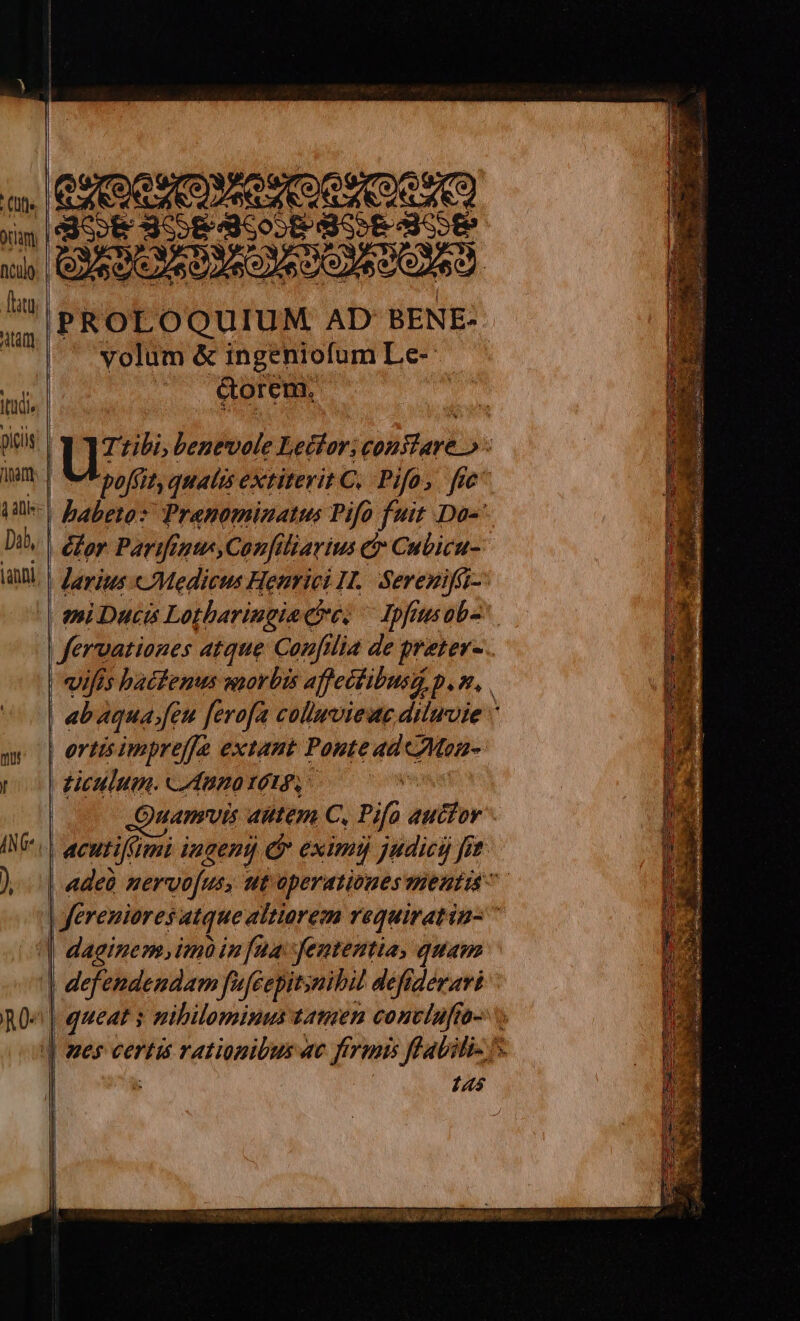 PROLOQUIUM AD BENE-
volum & ingeniosum Le-
ctorem.
UTtibi, benevole Lector, constare
possit, qualis extiterit C. Piso, sic
habeto: Prænominatus Piso fuit Do-
ctor Parisinus, Consiliarius & Cubicu-
larius Medicus Henrici II. Serenissi-
mi Ducis Lotharingiæ &c. Ipsius ob-
servationes atque Consilia de præter-
visis hactenus morbis affectibusq; p. n.
ab aqua, seu serosa colluvie ac diluvie
ortis impressæ extant Ponte ad Mon-
ticulum. Anno 1618.
Quamvis autem C. Piso auctor
acutissimi ingenij & eximij judicij sit
adeò nervosus, ut operationes mentis
sereniores atque altiorem requirat in-
daginem, imò in sua sententia, quam
defendendam suscepit, nihil desiderari
queat; nihilominus tamen conclusio-
nes certis rationibus ac firmis stabili-
tas
cun-
otiam
nculo
statu
atam
itudi-
piciis
Dab,
ianni
mus
r
ING-
),
RO-